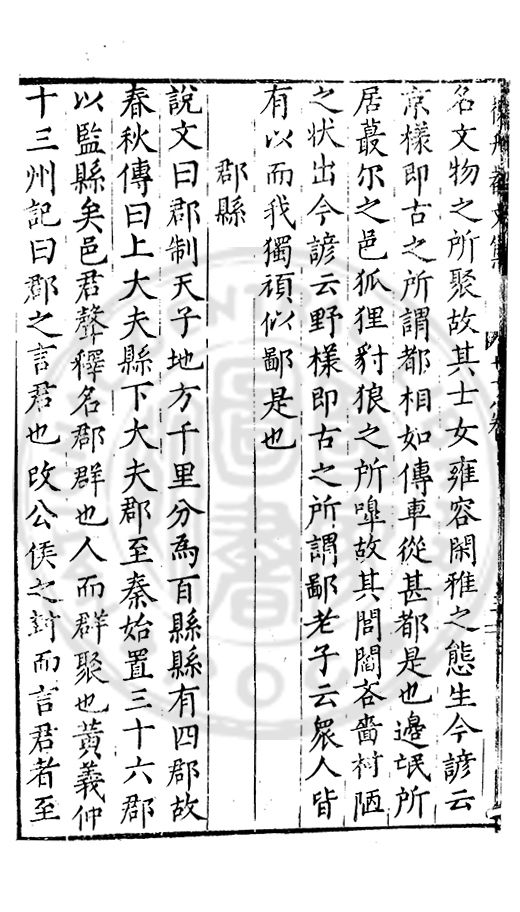 名文物之所聚故其士女雍容閑雅之態生今諺云
京樣即古之所謂都相如傳車從甚都是也邊氓所
居蕞尔之邑狐狸豺狼之所嘷故其閭閻吝嗇村陋
之状出今諺云野様即古之所謂鄙老子云衆人皆
有以而我獨頑似鄙是也
郡縣
說文曰郡制天子地方千里分為百縣縣有四郡故
春秋傳曰上大夫縣下大夫郡至秦始置三十六郡
以監縣矣邑君聲釋名郡群也人而群聚也黃義仲
十三州記曰郡之言君也改公侯之封而言君者至